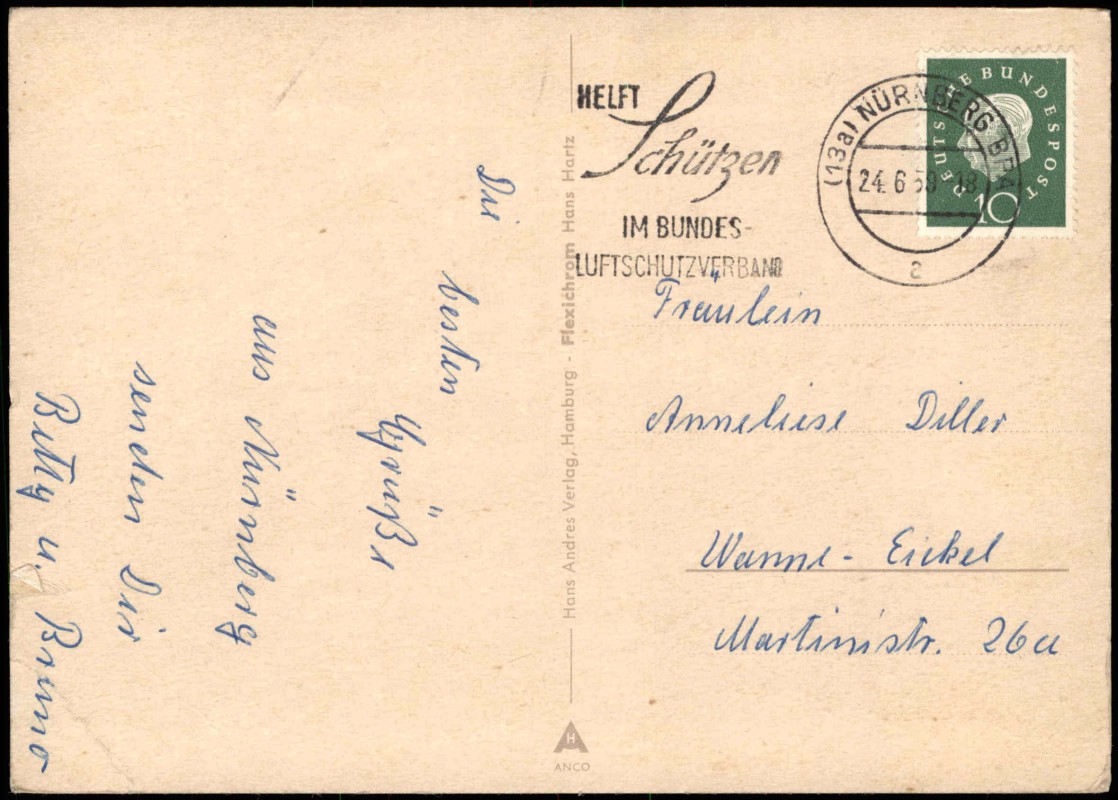 HELFT
Schützen
IM BUNDES-
LUFTSCHUTZVERBAND
(13a) NÜRNBERG
24.6.59-18
a
DEUTSCHE BUNDESPOST
10
Die
besten
Grüße
aus Nürnberg
senden Dir
Betty u. Bruno
Hans Andres Verlag, Hamburg - Flexichrom Hans Hartz
H
ANCO
Fräulein
Anneliese Diller
Wanne-Eickel
Martinistr. 26a